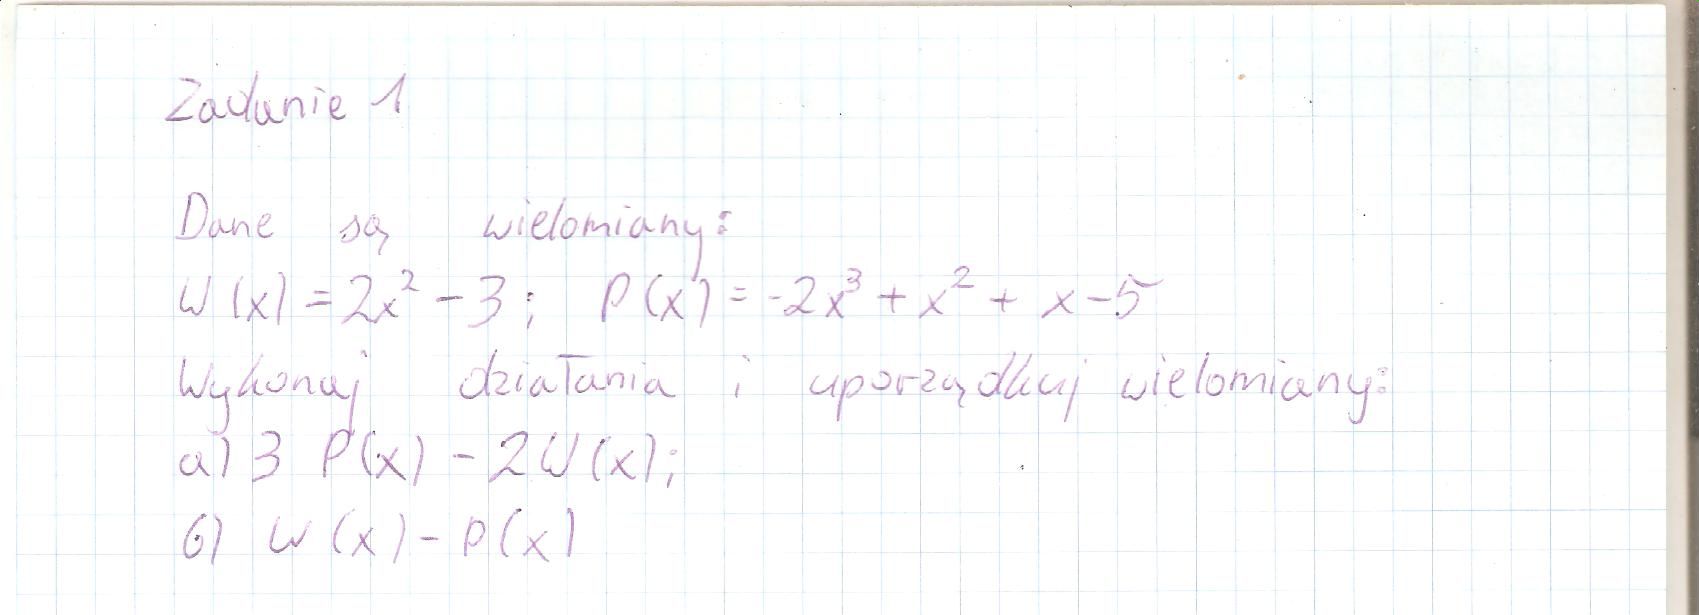 Zadanie 1
Dane są wielomiany:
W(x) = 2x² - 3; P(x) = -2x³ + x² + x - 5
Wykonaj działania i uporządkuj wielomiany:
a) 3 P(x) - 2W(x);
b) W(x) - P(x)